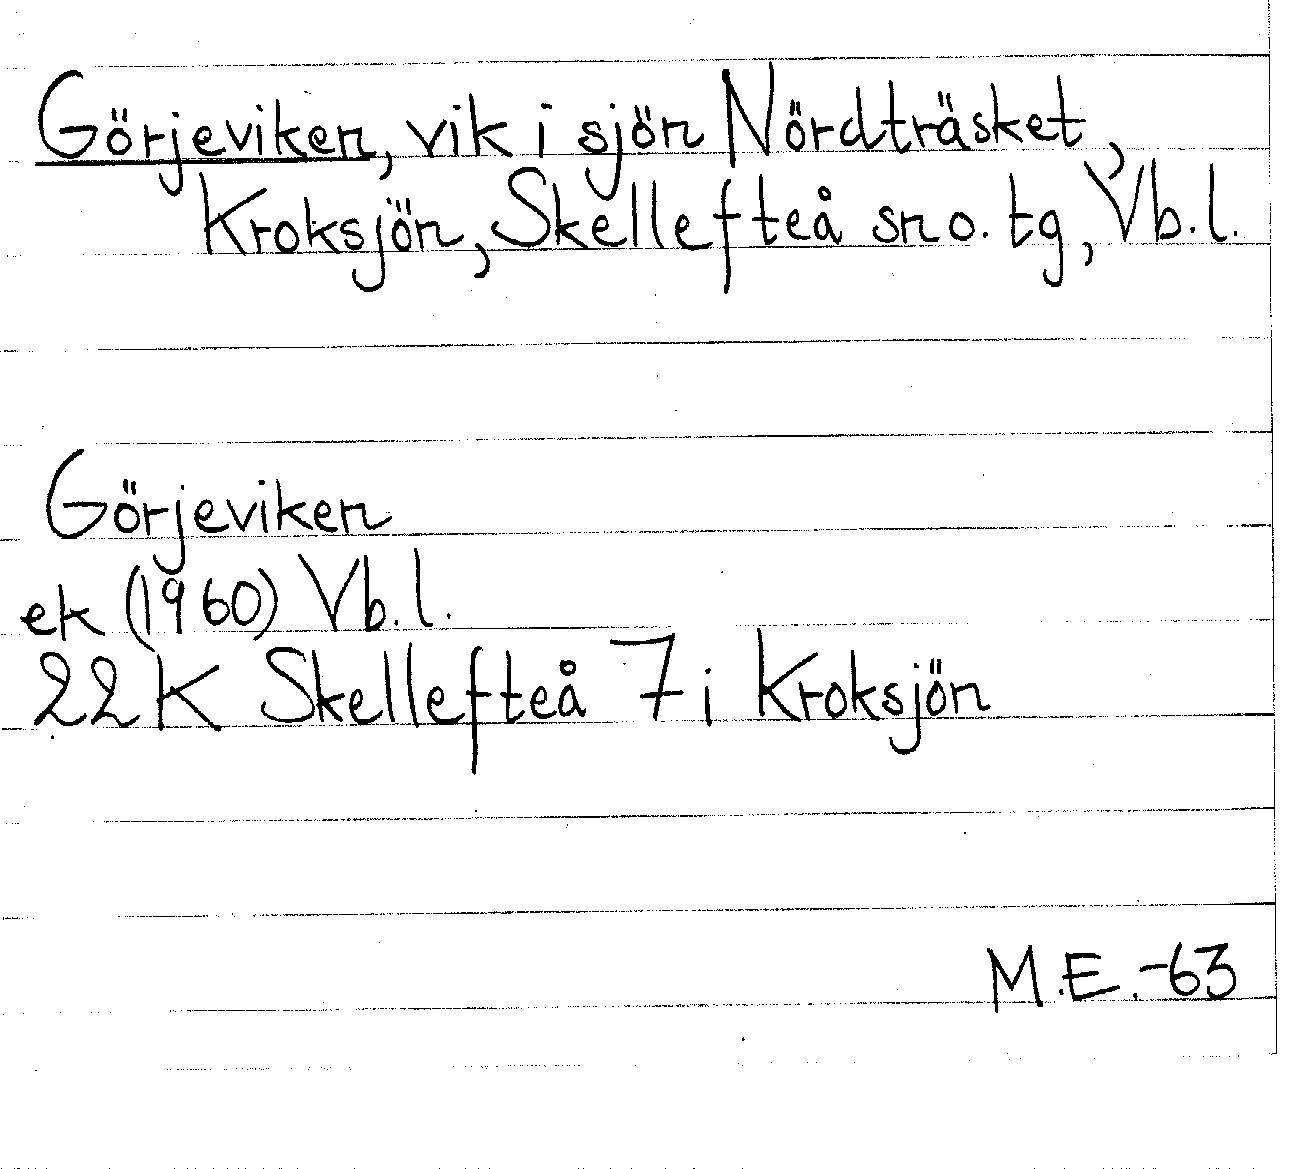 Görjeviken, vik i sjön Nördträsket,
Kroksjön, Skellefteå sn o. tg, Vb. l.
Görjeviken
ek (1960) Vb. l.
22 K Skellefteå 7 i Kroksjön
M.E.-63